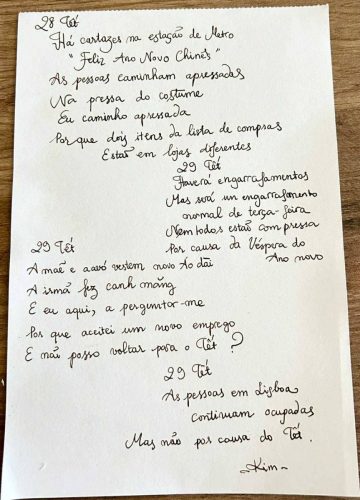 28 Tết
Há cartazes na estação de Metro
"Feliz Ano Novo Chinês"
As pessoas caminham apressadas
Na pressa do costume
Eu caminho apressada
Porque dois itens da lista de compras
Estão em lojas diferentes
29 Tết
Haverá engarrafamentos
Mas será um engarrafamento
normal de terça-feira
Nem todos estão com pressa
Por causa da Véspera do
Ano novo
29 Tết
A mãe e a avó vestem novo Ao dài
A irmã fez canh măng
E eu aqui, a perguntar-me
Por que aceitei um novo emprego
E não posso voltar para o Tết?
29 Tết
As pessoas em Lisboa
Continuam ocupadas
Mas não por causa do Tết.
-Kim-